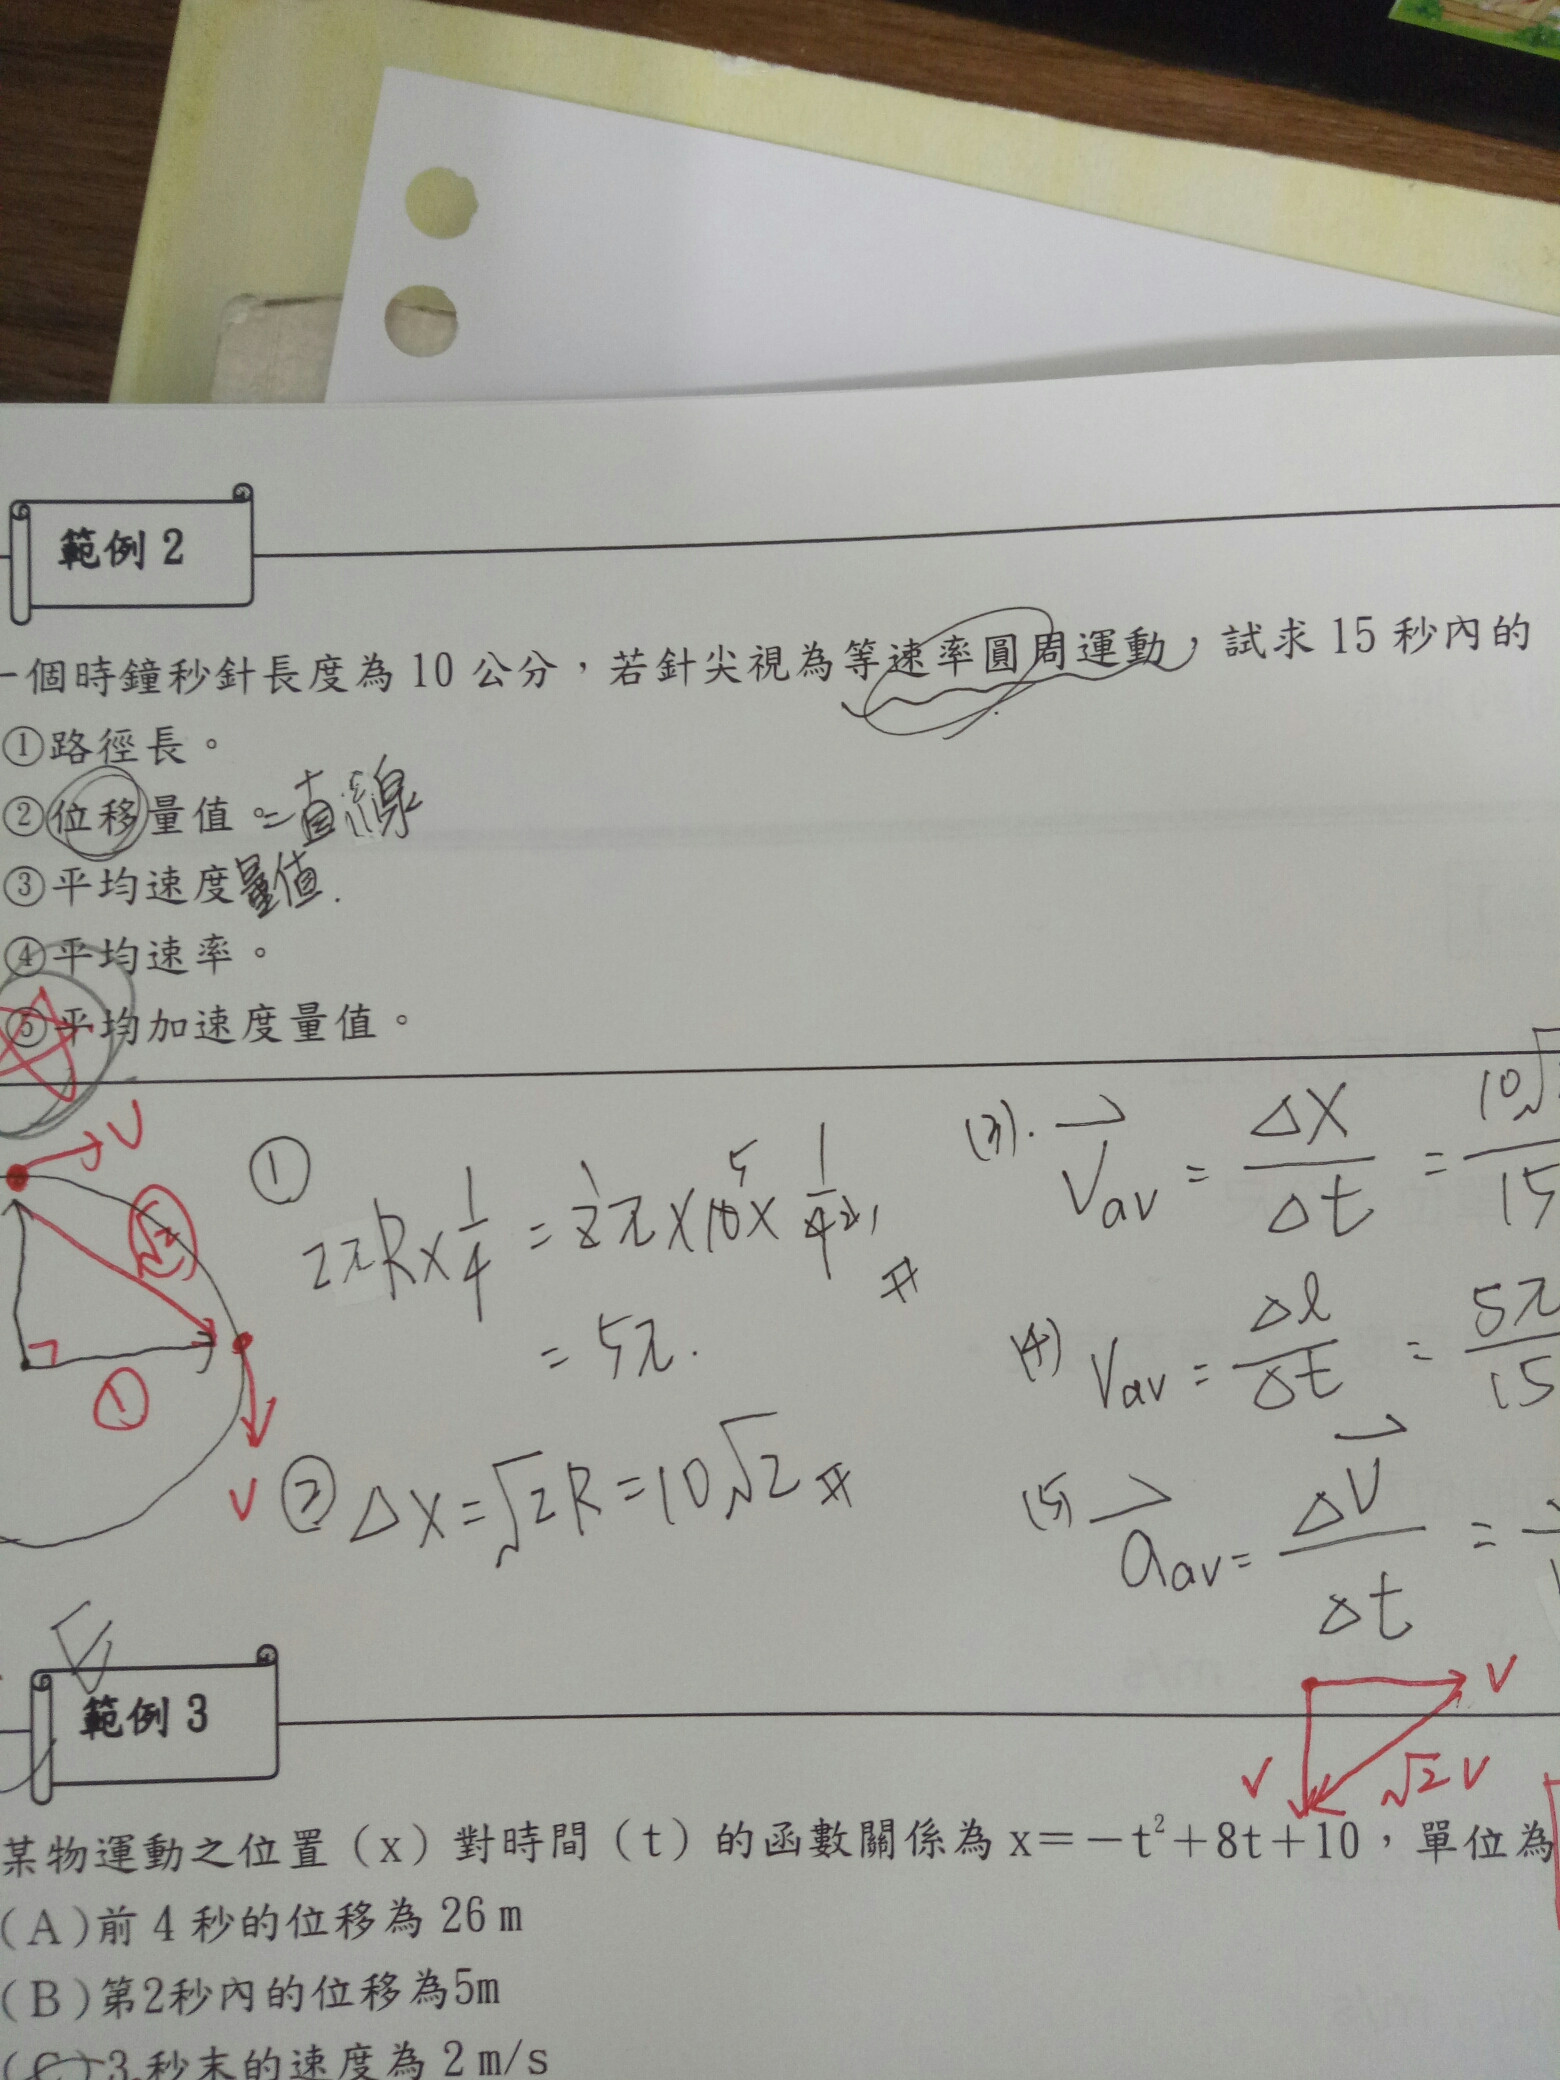 範例 2
一個時鐘秒針長度為 10 公分，若針尖視為等速率圓周運動，試求 15 秒內的
①路徑長。
②位移量值。=直線
③平均速度量值.
④平均速率。
⑤平均加速度量值。
V
√2
①
V
① 2πR×1/4 = 2π×10×1/4
= 5π.
② ΔX=√2R=10√2
(3). Vav = ΔX/Δt = 10√/15
(4) Vav = Δl/Δt = 5π/15
(5) aav= ΔV/Δt =
V
V
√2 V
範例 3
某物運動之位置（x）對時間（t）的函數關係為 x＝－t²＋8t＋10，單位為
(A)前 4 秒的位移為 26 m
(B)第2秒內的位移為5m
(C)3秒末的速度為 2 m/s